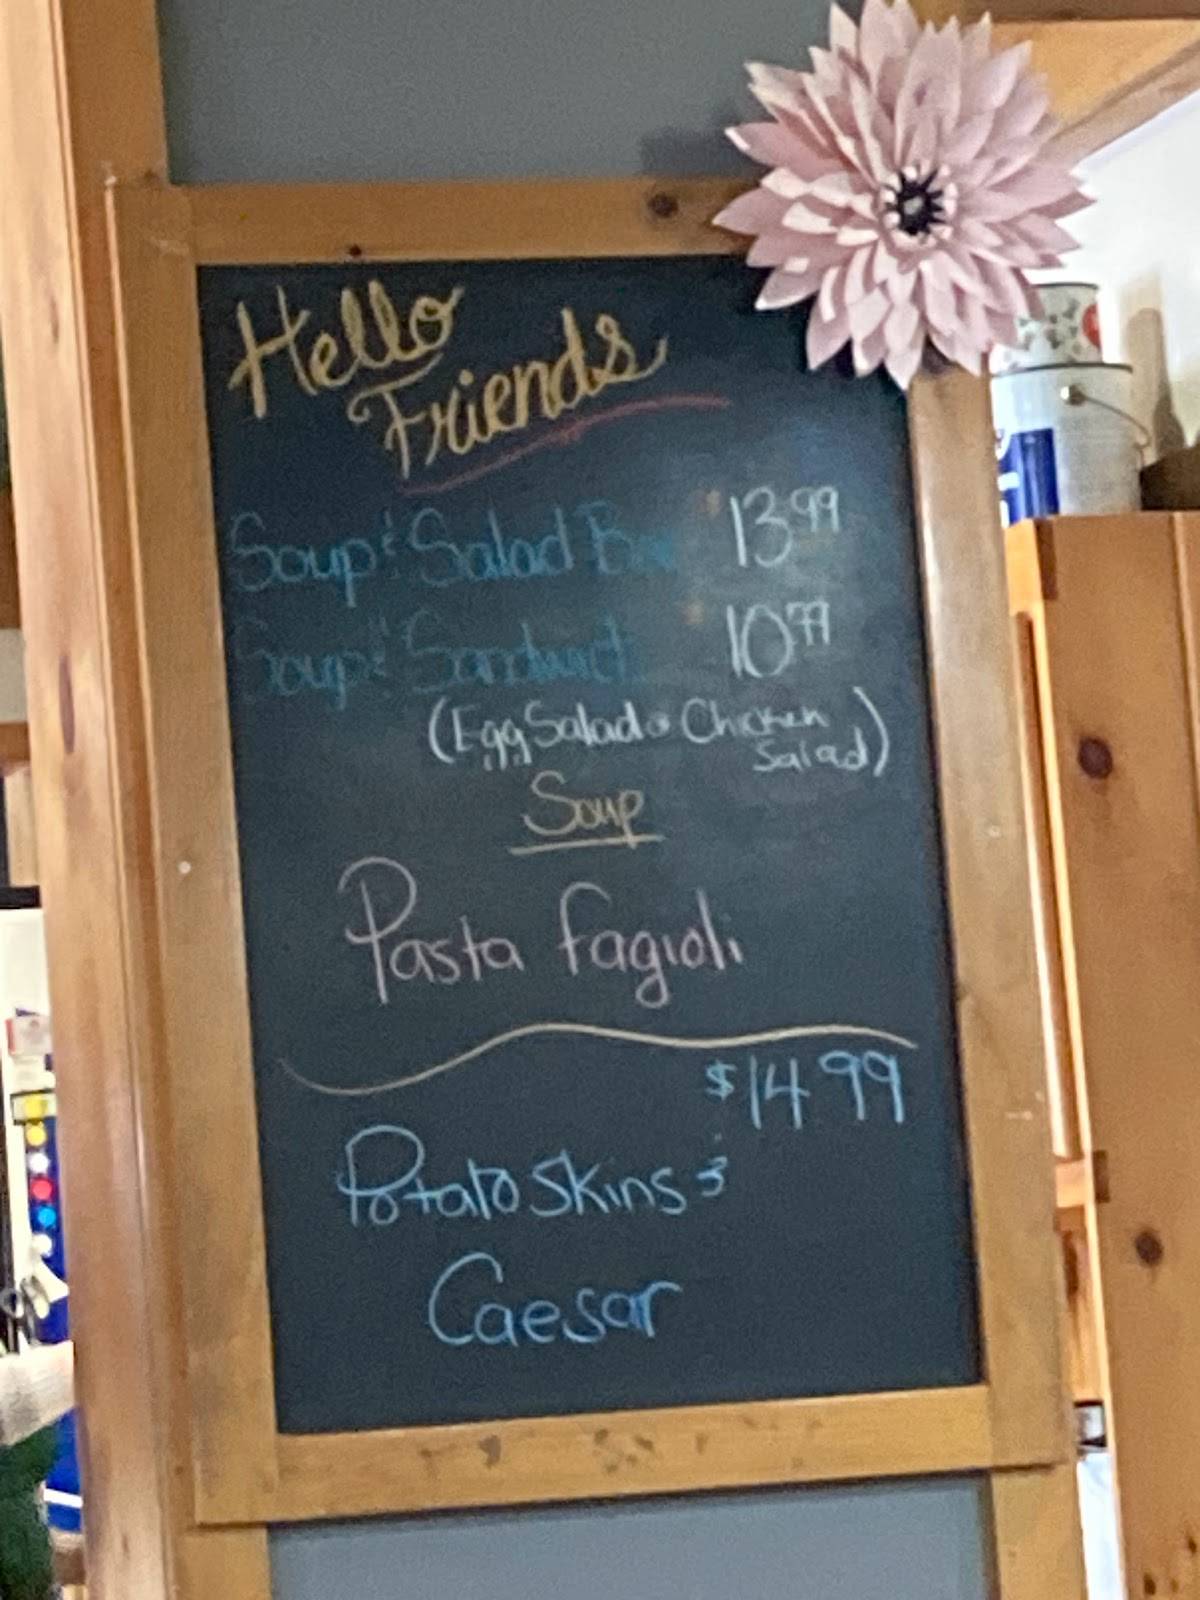 Hello
Friends
Soup & Salad Bar 13.99
Soup & Sandwich 10.99
(Egg Salad or Chicken
Salad)
Soup
Pasta Fagioli
$14.99
Potato Skins &
Caesar